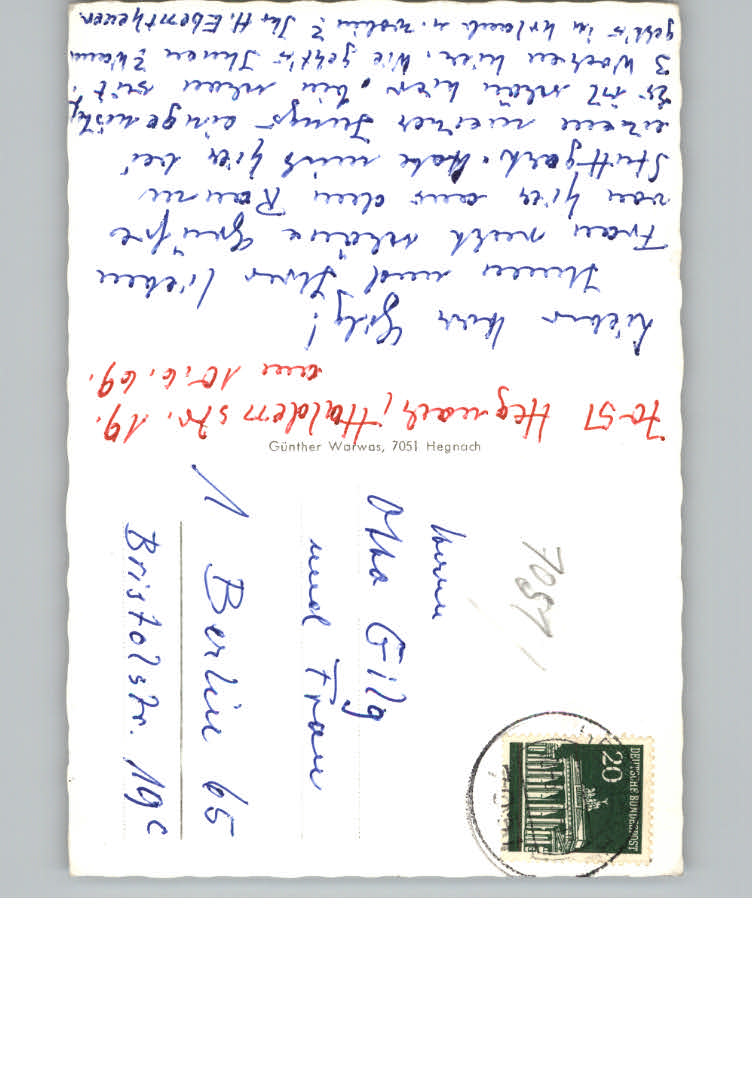 7051 Hegnach, Haldenstr. 19.
am 10.6.69.
Lieber Herr Gilg!
Ihnen und Ihrer lieben
Frau recht schöne Grüße
von hier aus dem Raum
Stuttgart. Habe mich hier bei
einem meiner Jungs eingenistet,
es ist schön hier, bin schon seit
3 Wochen hier. Wie geht's Ihnen? Wann
geht's in Urlaub u. wohin? Ihr H. Ebentheuer
Günther Warwas, 7051 Hegnach
7051
Herrn
Otto Gilg
und Frau
1 Berlin 65
Bristolstr. 19c
DEUTSCHE BUNDESPOST
20